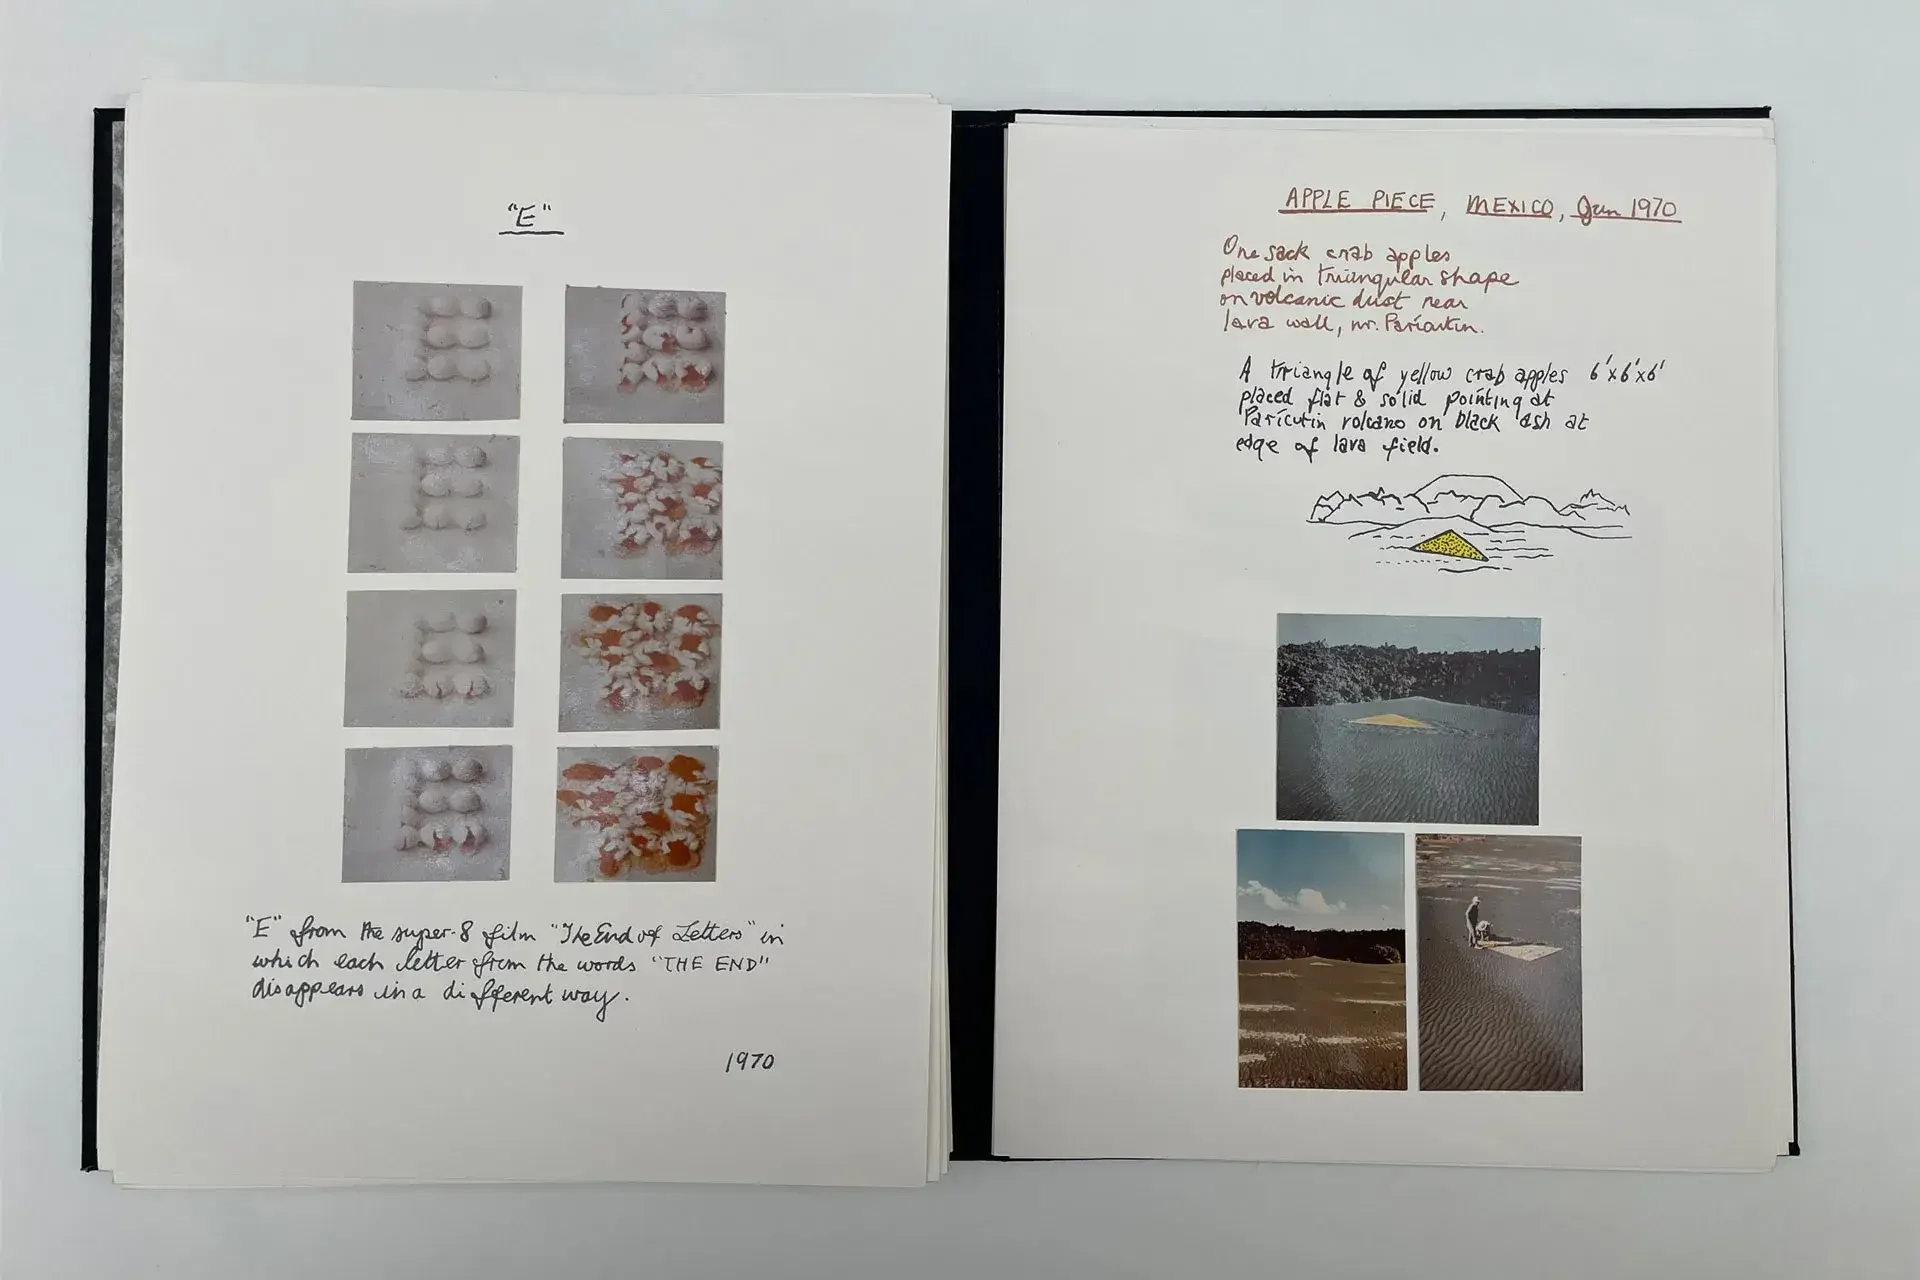 "E"
"E" from the super-8 film "The End of Letters" in
which each letter from the words "THE END"
disappears in a different way.
1970
APPLE PIECE, MEXICO, Jan 1970
One sack crab apples
placed in triangular shape
on volcanic dust near
lava wall, nr. Paricutin.
A triangle of yellow crab apples 6'x6'x6'
placed flat & solid pointing at
Paricutin volcano on black ash at
edge of lava field.